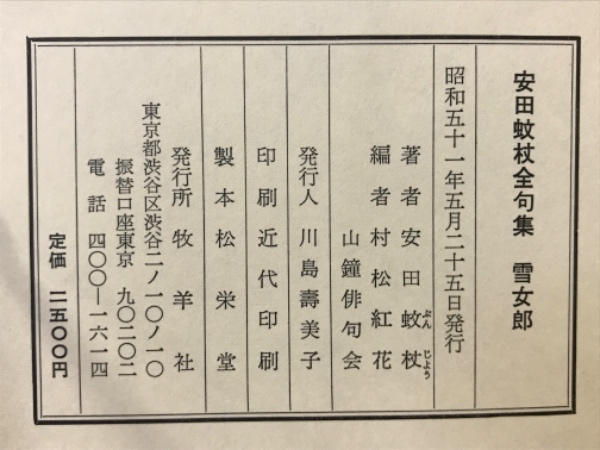 安田蚊杖全句集　雪女郎
昭和五十一年五月二十五日発行
著者　安田蚊杖
ぶん　じょう
編者　村松紅花
山鐘俳句会
発行人　川島壽美子
印刷　近代印刷
製本　松栄堂
発行所　牧羊社
東京都渋谷区渋谷二ノ一〇ノ一〇
振替口座東京　九〇二〇二
電話　四〇〇―一六一四
定価　二五〇〇円